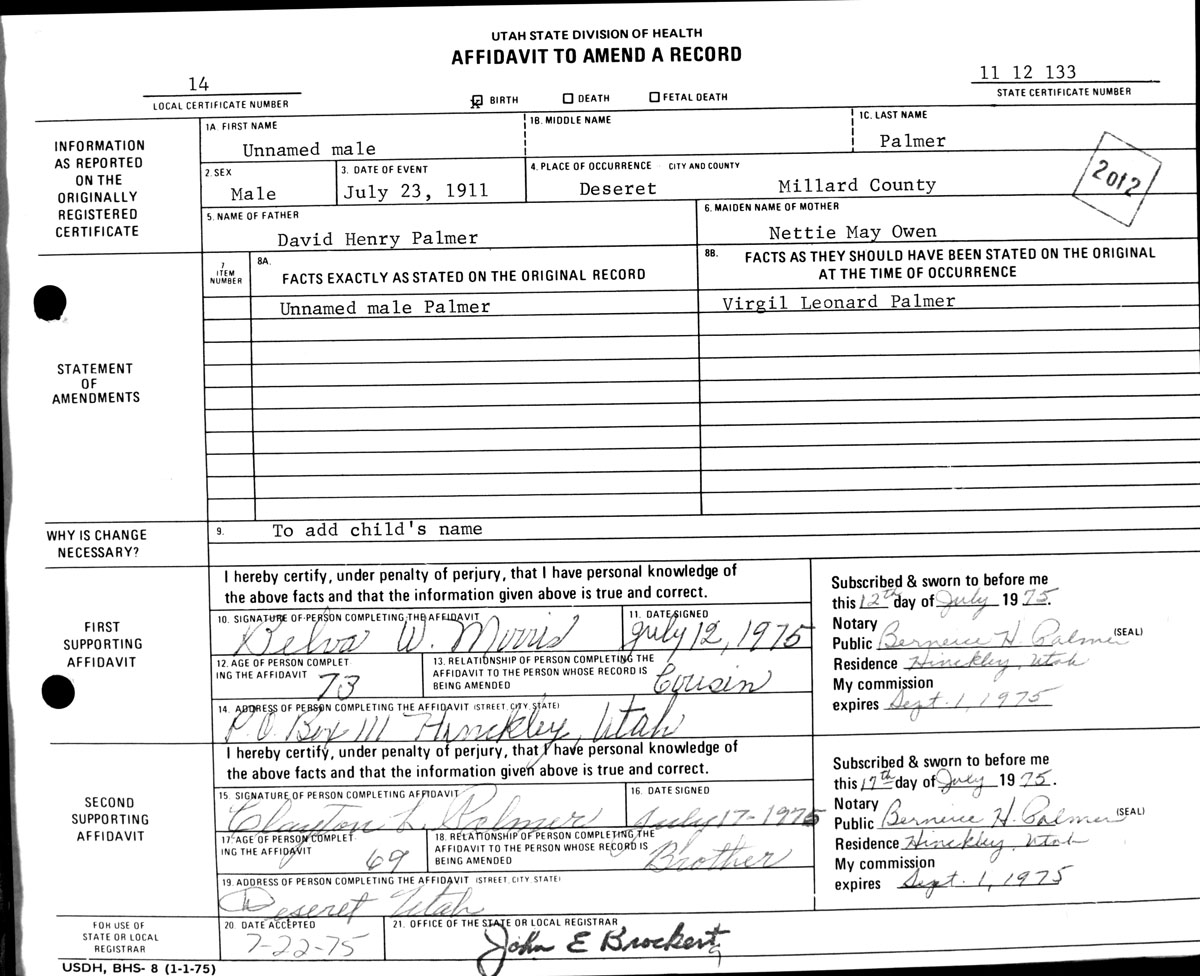 UTAH STATE DIVISION OF HEALTH
AFFIDAVIT TO AMEND A RECORD
14
LOCAL CERTIFICATE NUMBER
X BIRTH ☐ DEATH ☐ FETAL DEATH
11 12 133
STATE CERTIFICATE NUMBER
INFORMATION
AS REPORTED
ON THE
ORIGINALLY
REGISTERED
CERTIFICATE
1A. FIRST NAME
Unnamed male
1B. MIDDLE NAME
1C. LAST NAME
Palmer
2. SEX
Male
3. DATE OF EVENT
July 23, 1911
4. PLACE OF OCCURRENCE - CITY AND COUNTY
Deseret Millard County
2012
5. NAME OF FATHER
David Henry Palmer
6. MAIDEN NAME OF MOTHER
Nettie May Owen
STATEMENT
OF
AMENDMENTS
7
ITEM
NUMBER
8A.
FACTS EXACTLY AS STATED ON THE ORIGINAL RECORD
8B. FACTS AS THEY SHOULD HAVE BEEN STATED ON THE ORIGINAL
AT THE TIME OF OCCURRENCE
Unnamed male Palmer
Virgil Leonard Palmer
WHY IS CHANGE
NECESSARY?
9. To add child's name
FIRST
SUPPORTING
AFFIDAVIT
I hereby certify, under penalty of perjury, that I have personal knowledge of
the above facts and that the information given above is true and correct.
10. SIGNATURE OF PERSON COMPLETING THE AFFIDAVIT
Delva W. Morris
11. DATE SIGNED
July 12, 1975
12. AGE OF PERSON COMPLET
ING THE AFFIDAVIT 73
13. RELATIONSHIP OF PERSON COMPLETING THE
AFFIDAVIT TO THE PERSON WHOSE RECORD IS
BEING AMENDED
Cousin
14. ADDRESS OF PERSON COMPLETING THE AFFIDAVIT (STREET, CITY, STATE)
P.O. Box 111 Hinckley, Utah
Subscribed & sworn to before me
this 12th day of July 1975.
Notary
Public Berneice H. Palmer (SEAL)
Residence Hinckley, Utah
My commission
expires Sept. 1, 1975
SECOND
SUPPORTING
AFFIDAVIT
I hereby certify, under penalty of perjury, that I have personal knowledge of
the above facts and that the information given above is true and correct.
15. SIGNATURE OF PERSON COMPLETING AFFIDAVIT
Clayton L. Palmer
16. DATE SIGNED
July 17-1975
17. AGE OF PERSON COMPLET
ING THE AFFIDAVIT 69
18. RELATIONSHIP OF PERSON COMPLETING THE
AFFIDAVIT TO THE PERSON WHOSE RECORD IS
BEING AMENDED
Brother
19. ADDRESS OF PERSON COMPLETING THE AFFIDAVIT (STREET, CITY, STATE)
Deseret Utah
Subscribed & sworn to before me
this 17th day of July 1975.
Notary
Public Berneice H. Palmer (SEAL)
Residence Hinckley, Utah
My commission
expires Sept. 1, 1975
FOR USE OF
STATE OR LOCAL
REGISTRAR
20. DATE ACCEPTED
7-22-75
21. OFFICE OF THE STATE OR LOCAL REGISTRAR
John E Brockert
USDH, BHS- 8 (1-1-75)